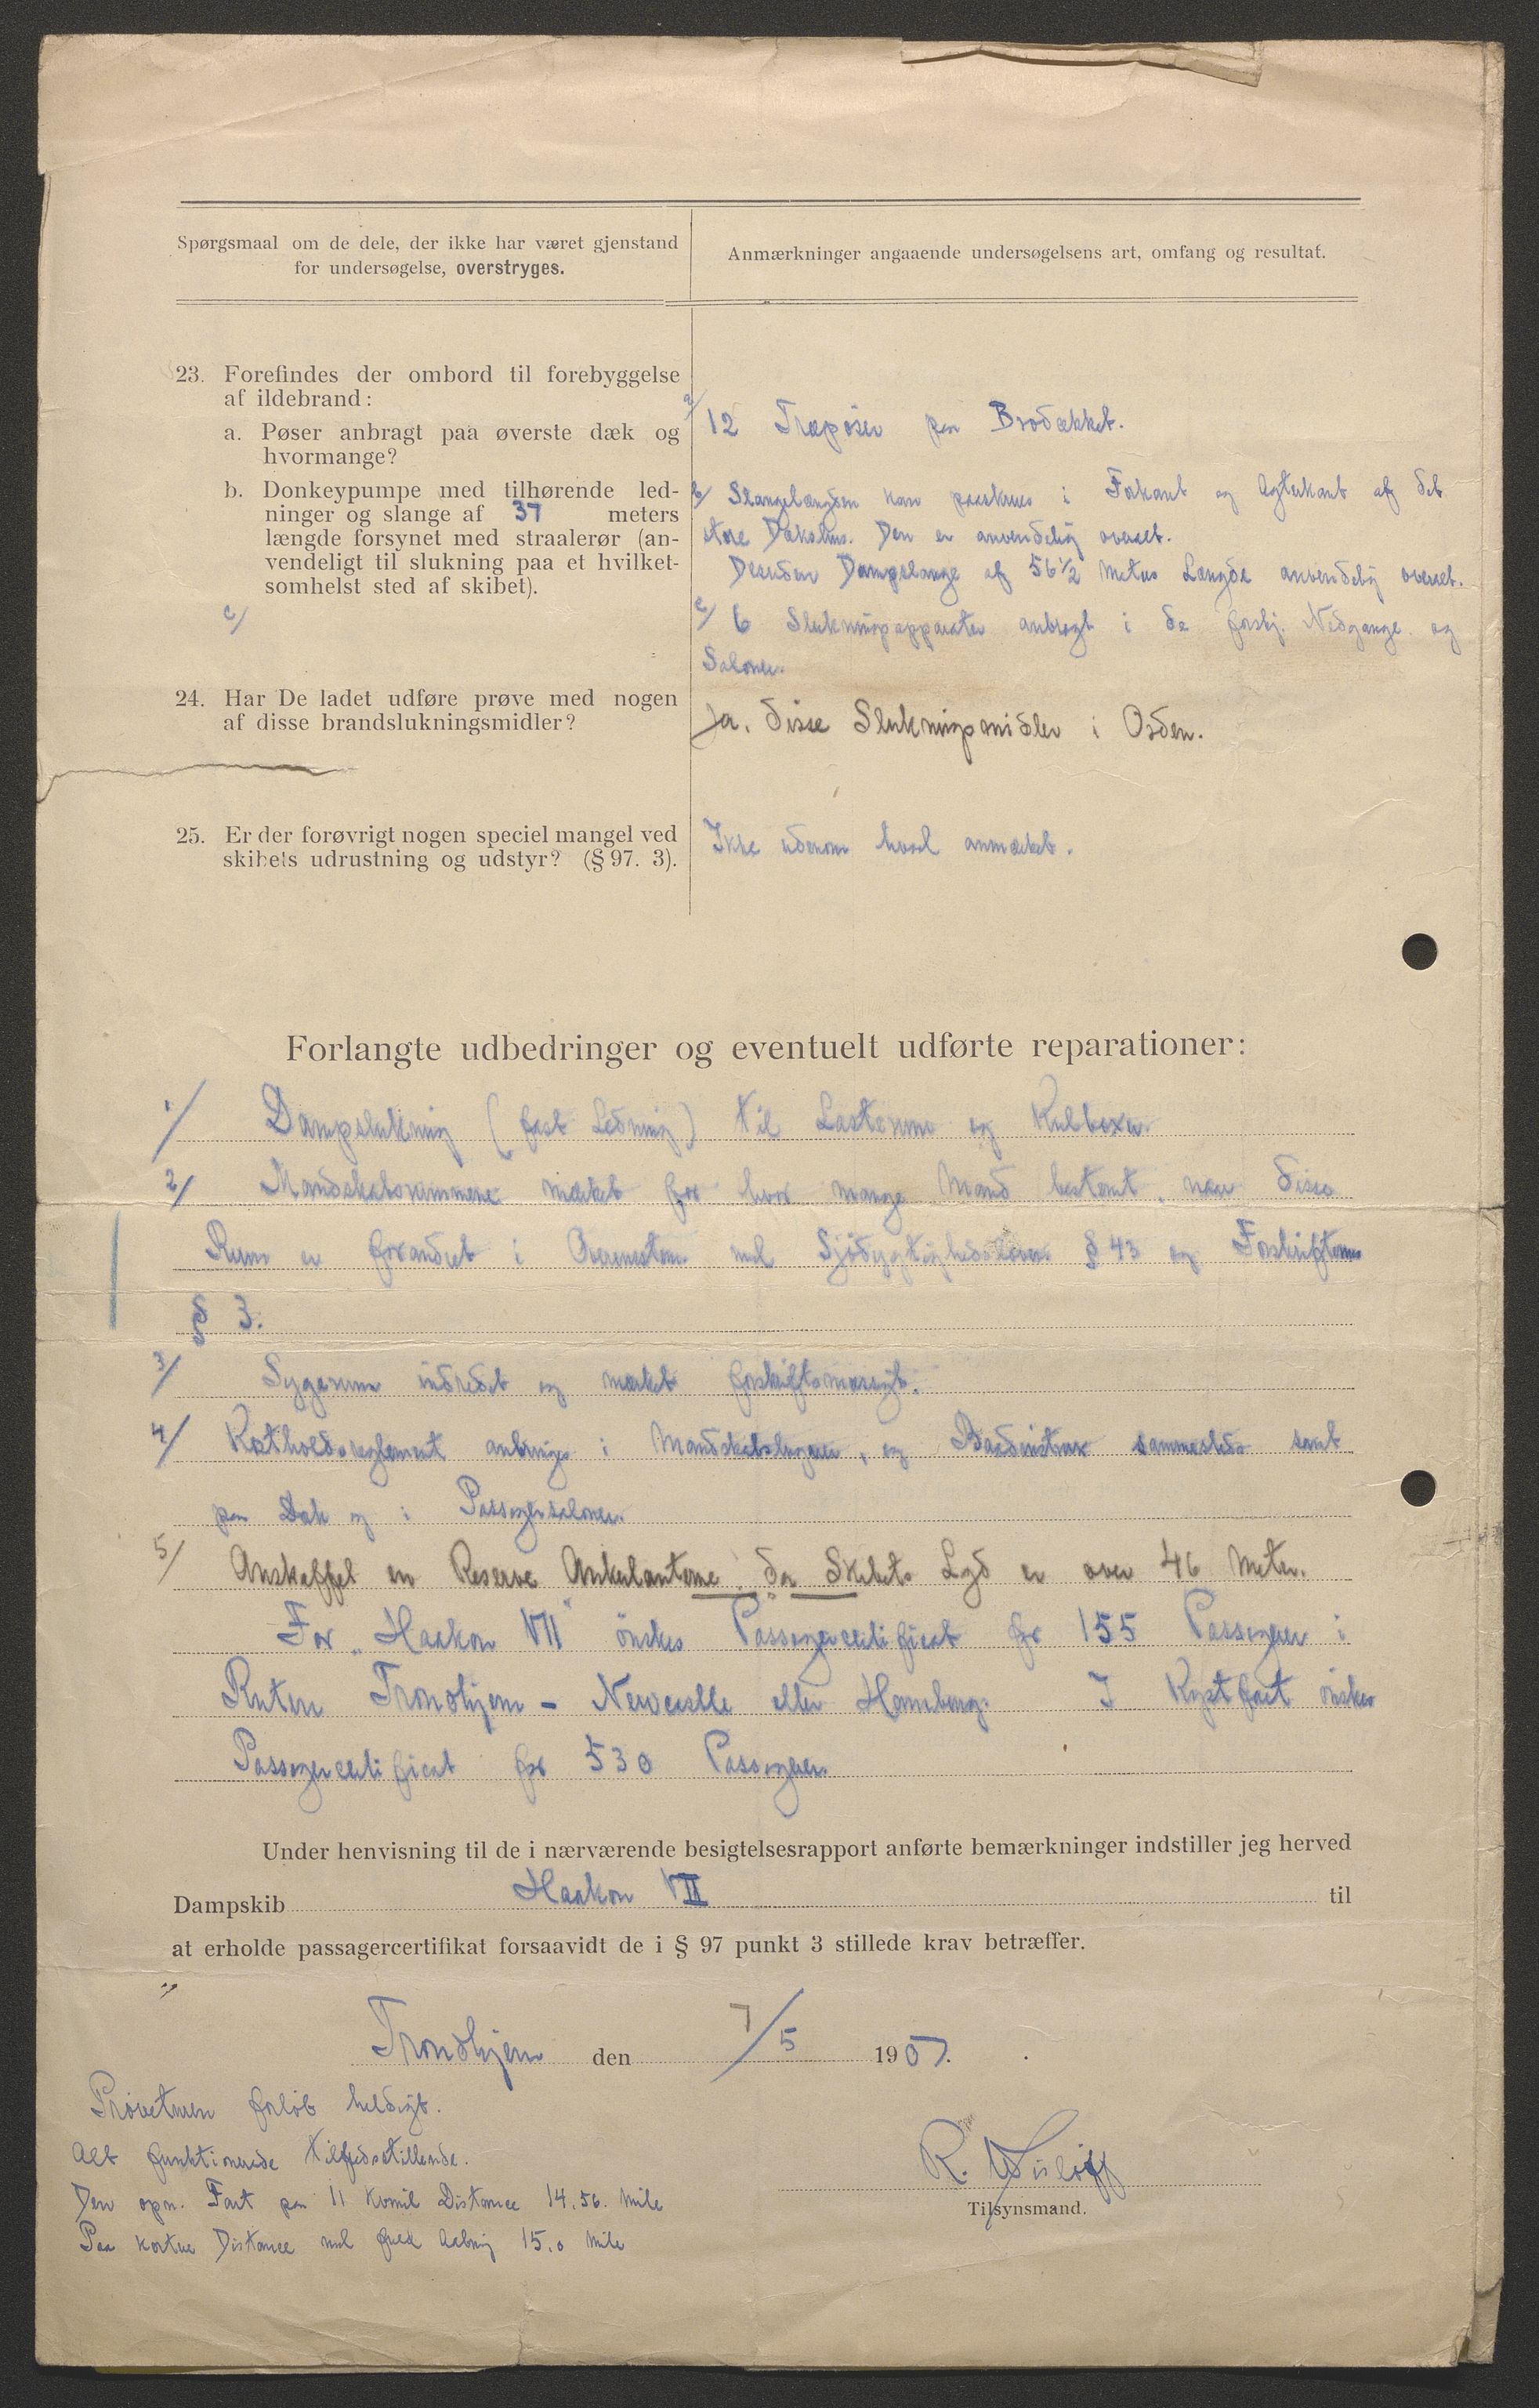 Spørgsmaal om de dele, der ikke har været gjenstand
for undersøgelse, overstryges.
Anmærkninger angaaende undersøgelsens art, omfang og resultat.
23. Forefindes der ombord til forebyggelse
af ildebrand:
a. Pøser anbragt paa øverste dæk og
hvormange?
a/ 12 Træpøser paa Brodækket.
b. Donkeypumpe med tilhørende led-
ninger og slange af 37 meters
længde forsynet med straalerør (an-
vendeligt til slukning paa et hvilket-
somhelst sted af skibet).
c/
b/ Slangelængden kan paaskrues i Forkant og Agterkant af det
store Dækshus. Den er anvendelig overalt.
Desuden Dampslange af 56 1/2 Meters Længde anvendelig overalt.
c/ 6 Slukningsapparater anbragt i de forskj. Nedgange og
Saloner.
24. Har De ladet udføre prøve med nogen
af disse brandslukningsmidler?
Ja. disse Slukningsmidler i Orden.
25. Er der forøvrigt nogen speciel mangel ved
skibets udrustning og udstyr? (§ 97. 3).
Ikke udenom hvad anmærket.
Forlangte udbedringer og eventuelt udførte reparationer:
1/ Dampslukning (fast Ledning) til Lasterum og Kulboxer.
2/ Mandskabsrummene mærket for hvor mange Mand bestemt, naar disse
Rum er forandret i Overensstem. med Sjødygtighedsloven § 43 og Forskrifternes
§ 3.
3/ Sygerum indredet og mærket forskriftsmæssigt.
4/ Kostholdsreglement anbringes i Mandskabslugarer, og Baadinstrux sammesteds samt
paa Dæk og i Passagersaloner.
5/ Anskaffet en Reserve Ankerlanterne, da Skibets Lgd er over 46 Meter.
For "Haakon VII" ønskes Passagercertificat for 155 Passagerer i
Ruten Trondhjem - Newcastle eller Hamburg. I Kystfart ønskes
Passagercertificat for 530 Passagerer.
Under henvisning til de i nærværende besigtelsesrapport anførte bemærkninger indstiller jeg herved
Dampskib Haakon VII til
at erholde passagercertifikat forsaavidt de i § 97 punkt 3 stillede krav betræffer.
Trondhjem den 7/5 1907.
Prøveturen forløb heldigt.
Alt funktionerede tilfredsstillende.
Den opn. Fart paa 11 Kvmil Distance 14,56 Mile
Paa kortere Distance med fuld Aabning 15,0 Mile
R.
Tilsynsmand.